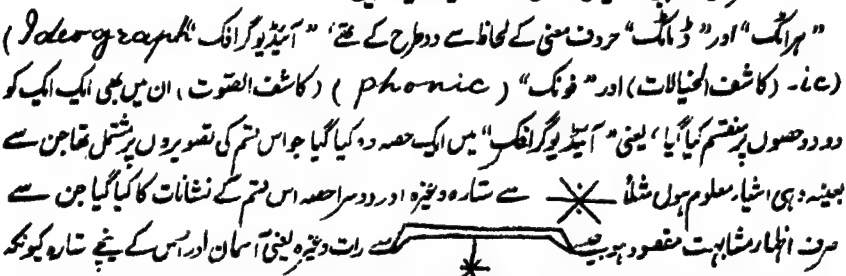 ” ہرانگ“ اور” ڈمانگ“ حروف معنی کے لحاظ سے دوطرح کے تھے، ” آئیڈیوگرافک“ (Ideograph
ic- (کاشف الخیالات) اور” فونک“ (phonic) (کاشف الصّوت، ان میں بھی ایک ایک کو
دو دو حصوں پر منقسم کیا گیا، یعنی ” آئیڈیوگرافک“ میں ایک حصہ وہ کیا گیا جو اس قسم کی تصویروں پر مشتمل تھا جن سے
بعینہ وہی اشیاء معلوم ہوں مثلاً سے ستارہ وغیرہ اور دوسرا حصہ اس قسم کے نشانات کا کیا گیا جن سے
صرف اظہار مشابہت مقصود ہو جیسے سے رات وغیرہ یعنی آسمان اور اُس کے نیچے ستارہ کیونکہ